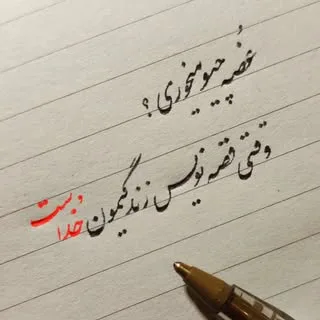 غُصّه چیو میخوری ؟
وقتی قصه نویس زندگیمون خُداست